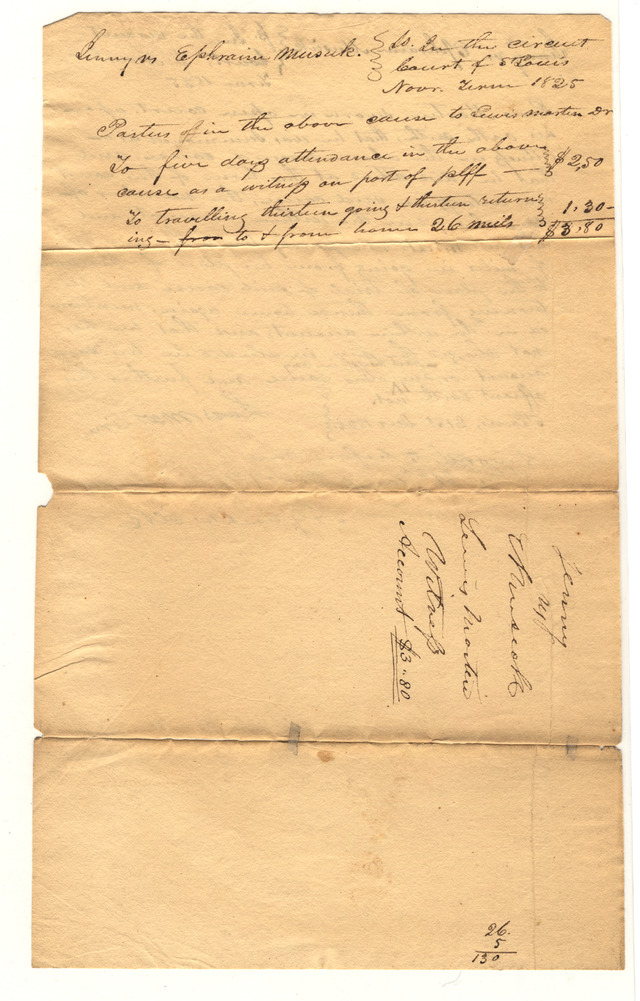 Jinny vs Ephraim Musick. } So. In the circuit
Court of St Louis
Novr. Term 1825
Parties of in the above cause to Lewis Martin Dr
To five days attendance in the above
cause as a witness on part of plff — $2,50
To travelling thirteen going & thirteen return-
ing — from to & from home 26 miles 1.30-
$3,80
Jenny
vs
E Musick
Lewis Martin
Witness
Account $3.80
26.
5
130